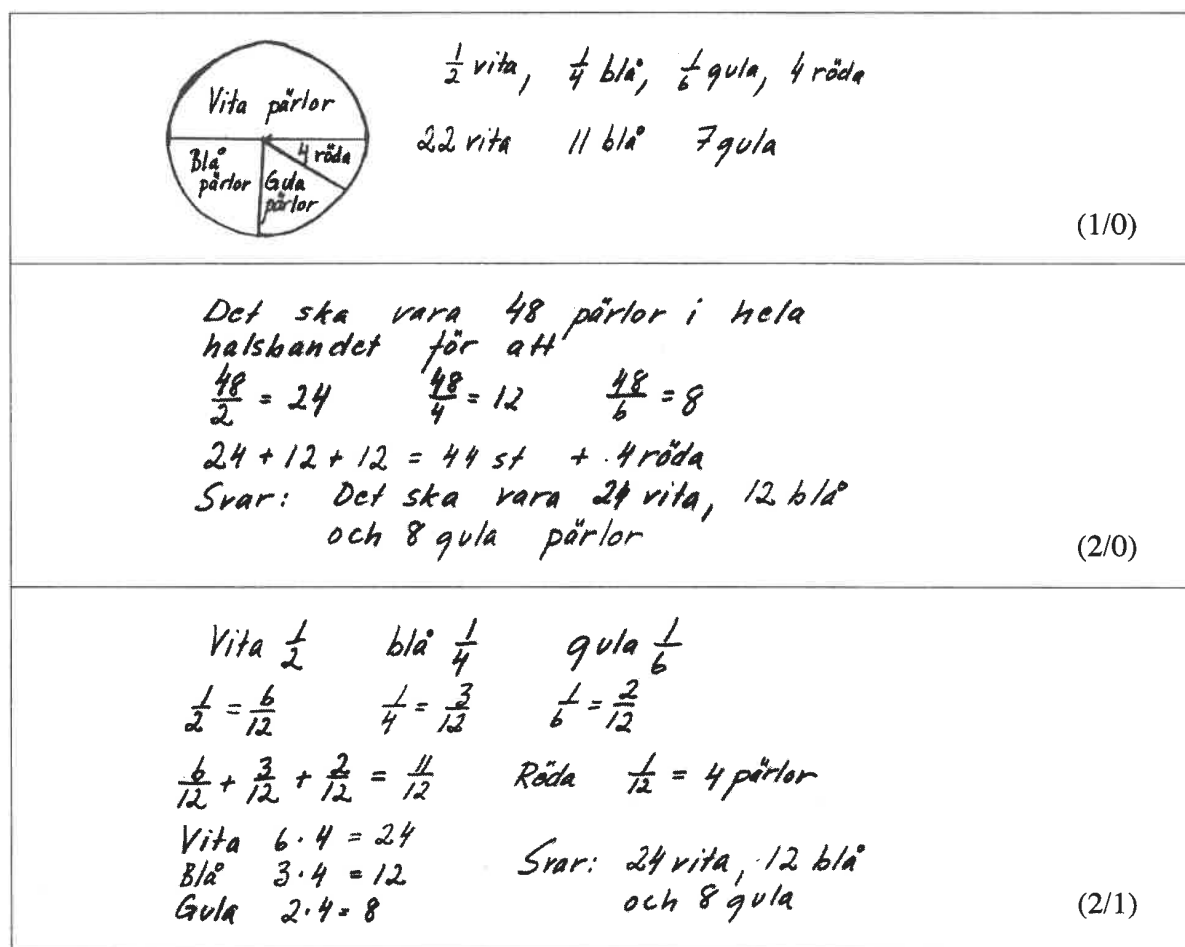 1/2 vita, 1/4 blå, 1/6 gula, 4 röda
Vita pärlor
22 vita 11 blå 7 gula
4 röda
Blå
pärlor
Gula
pärlor
(1/0)
Det ska vara 48 pärlor i hela
halsbandet för att
48/2 = 24 48/4 = 12 48/6 = 8
24 + 12 + 12 = 44 st + 4 röda
Svar: Det ska vara 24 vita, 12 blå
och 8 gula pärlor
(2/0)
Vita 1/2 blå 1/4 gula 1/6
1/2 = 6/12 1/4 = 3/12 1/6 = 2/12
6/12 + 3/12 + 2/12 = 11/12 Röda 1/12 = 4 pärlor
Vita 6·4 = 24
Blå 3·4 = 12
Gula 2·4 = 8
Svar: 24 vita, 12 blå
och 8 gula
(2/1)